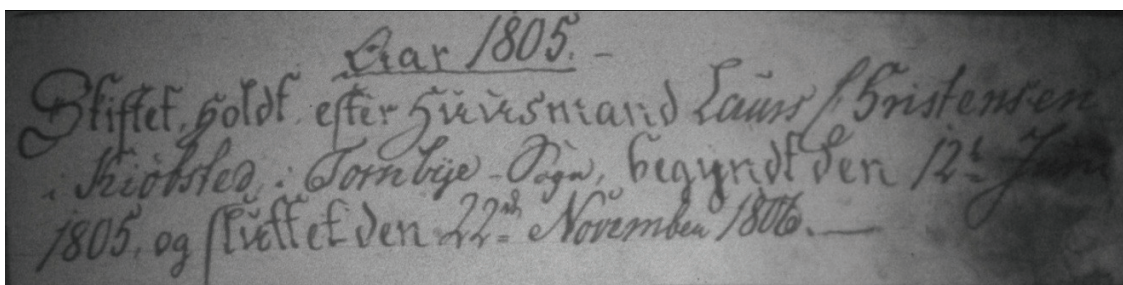 Aar 1805. -
Skiftet, holdt efter Huusmand Laurs Christensen
i Kiøbsted, i Tornbye - Sogn, begyndt den 12te Junii
1805, og sluttet den 22de November 1806. -